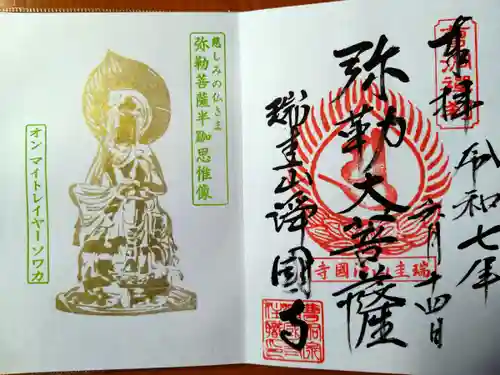 奉拝
令和七年
六月十四日
弥勒大菩薩
瑞圭山淨國寺
瑞圭山淨國寺
慈しみの仏さま
弥勒菩薩半跏思惟像
オン マイトレイヤー ソワカ